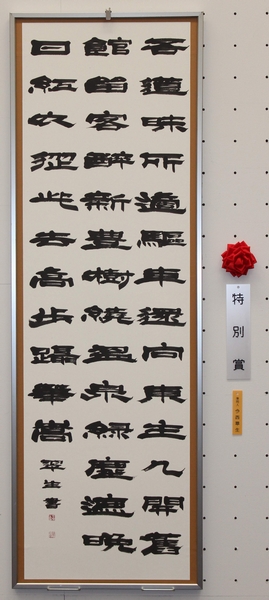 吾道昧所適驅車還向東主人開舊
館留客醉新豐樹繞溫泉綠塵遮晚
日紅衣從此去高步躡華嵩
翠生書
特別賞